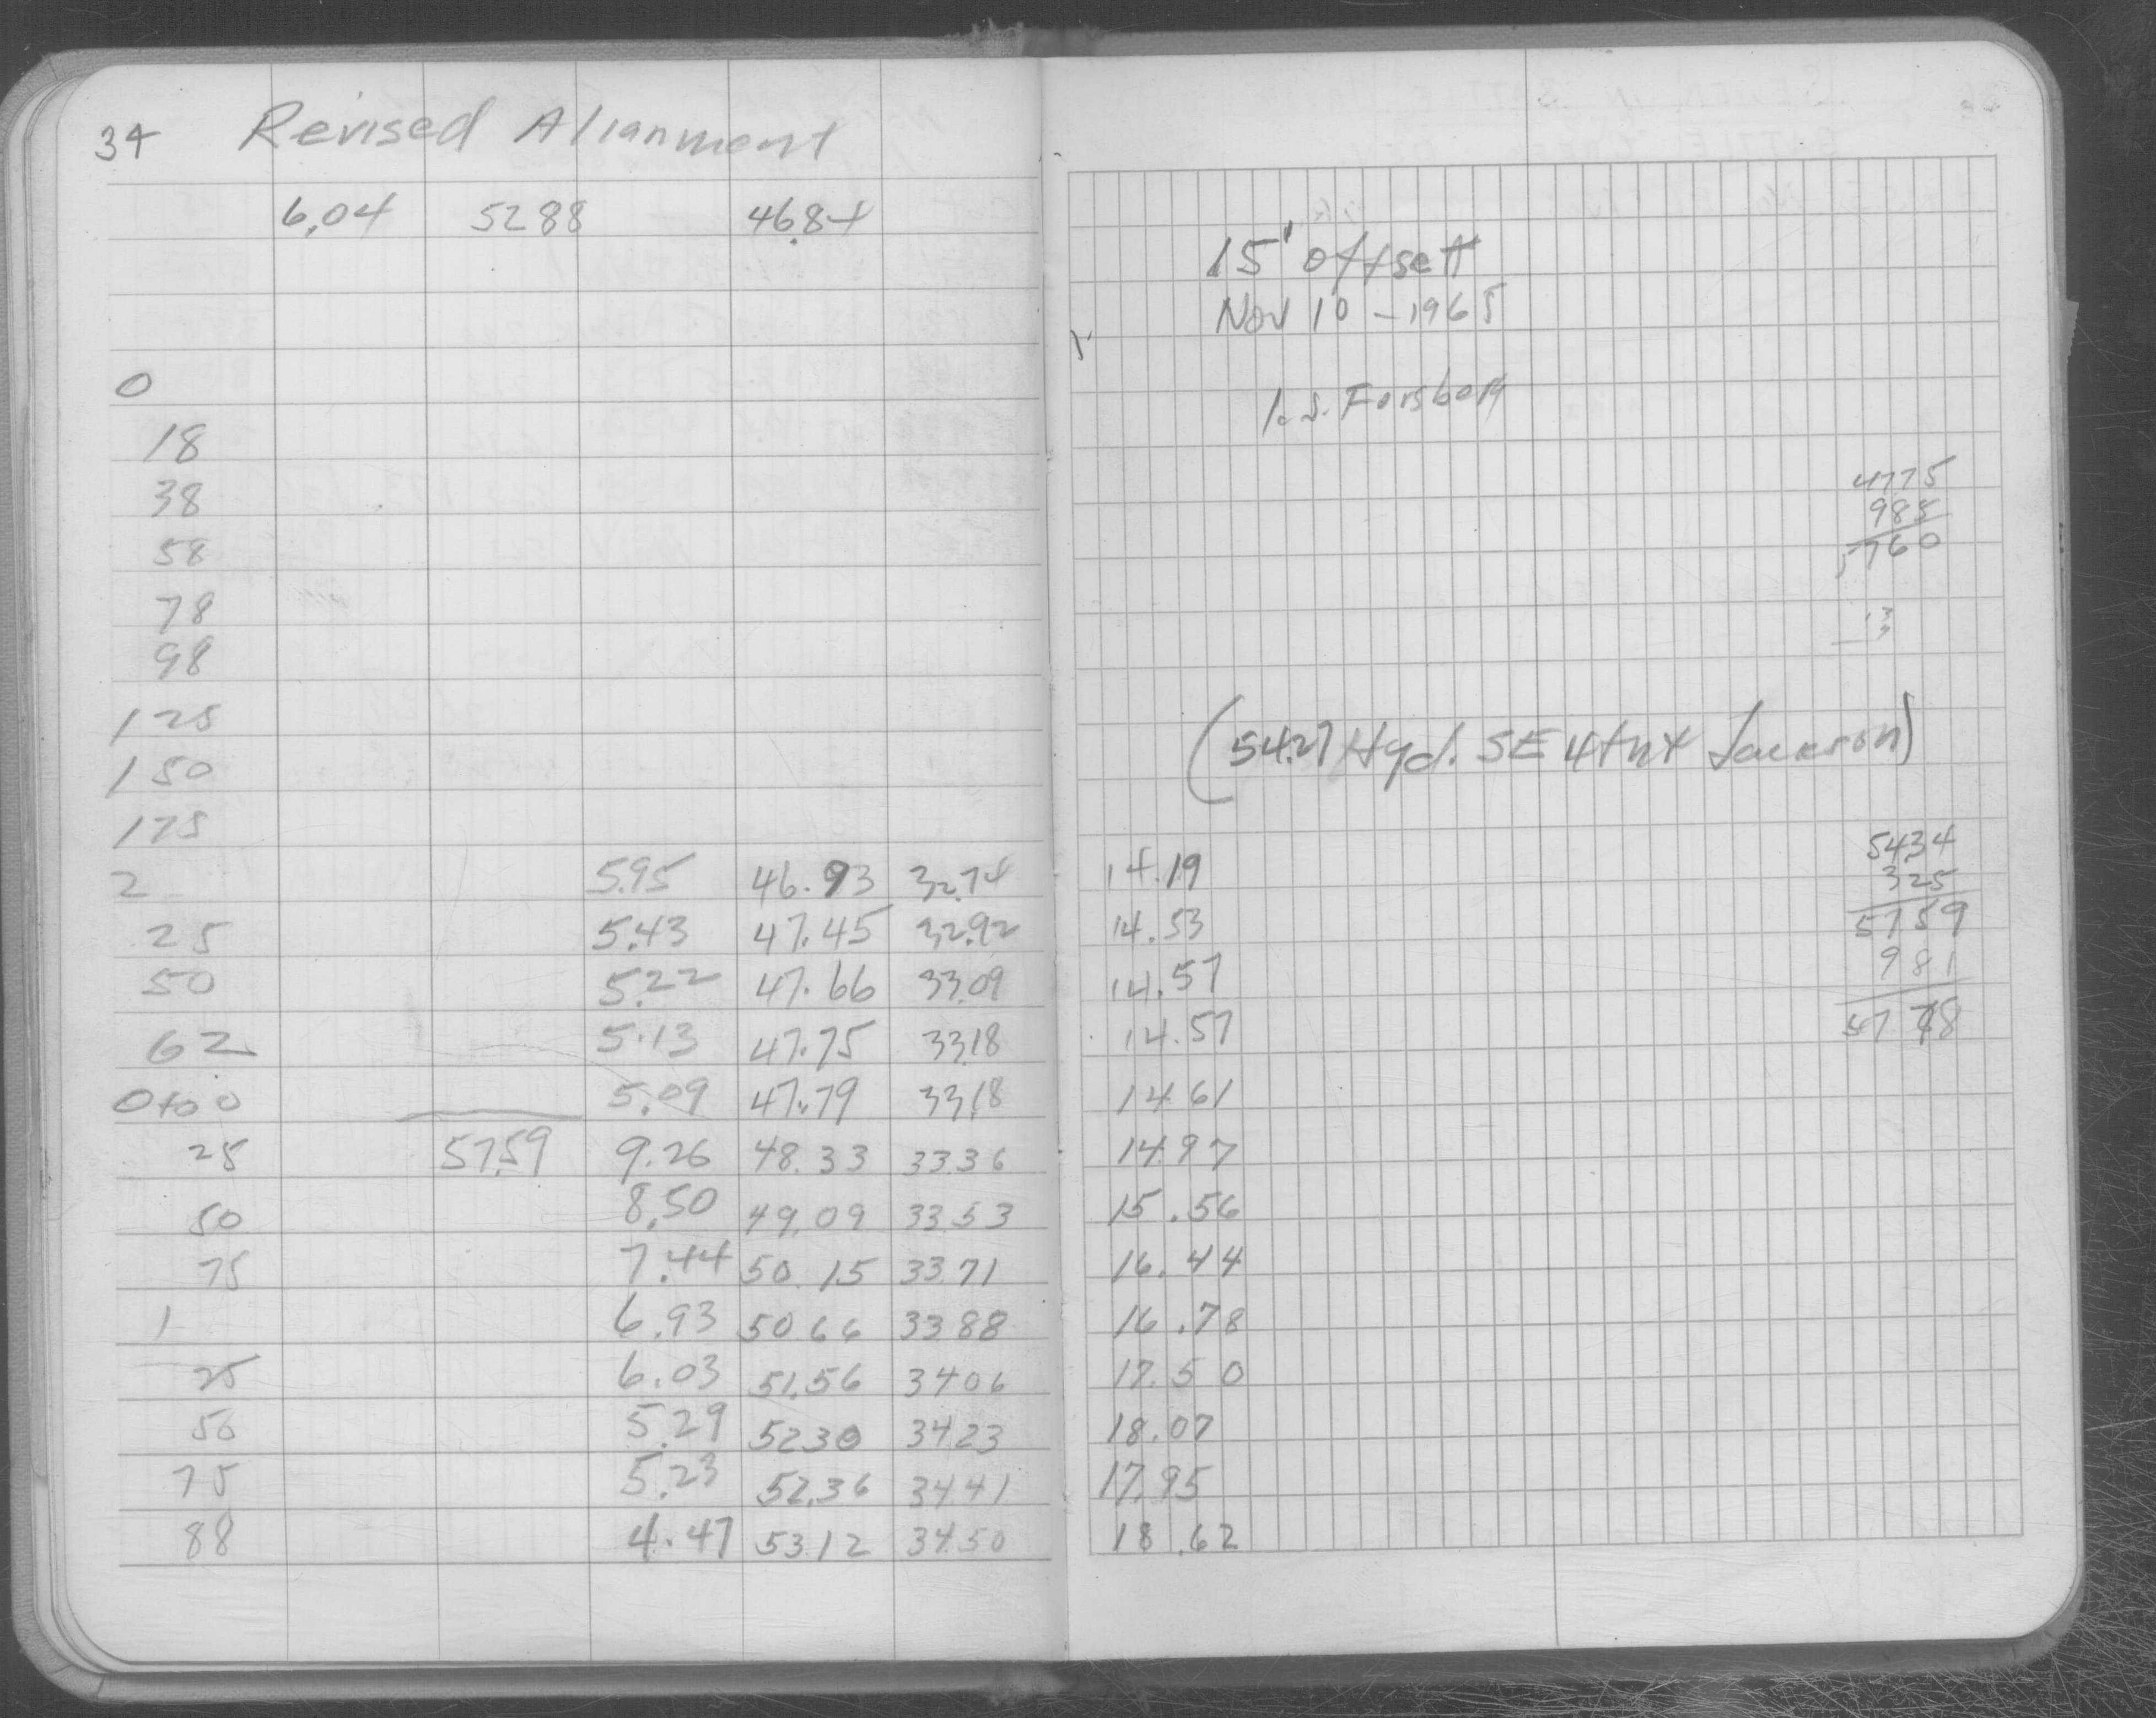 34 Revised Alianment
6.04 5288 46.84
0
18
38
58
78
98
125
150
175
2 5.95 46.93 32.74
25 5.43 47.45 32.92
50 5.22 47.66 33.09
62 5.13 47.75 33.18
0+00 5.09 47.79 33.18
25 57.59 9.26 48.33 33.36
50 8.50 49.09 33.53
75 7.44 50.15 33.71
1 6.93 50.66 33.88
25 6.03 51.56 34.06
50 5.29 52.30 34.23
75 5.23 52.36 34.41
88 4.47 53.12 34.50
15' offsett
Nov 10 - 1965
Forsberg
4775
985
5760
13
(54.27 Hyd. SE 4th & Jackson)
14.19
14.53
14.57
14.57
14.61
14.97
15.56
16.44
16.78
17.50
18.07
17.95
18.62
54.34
325
5759
981